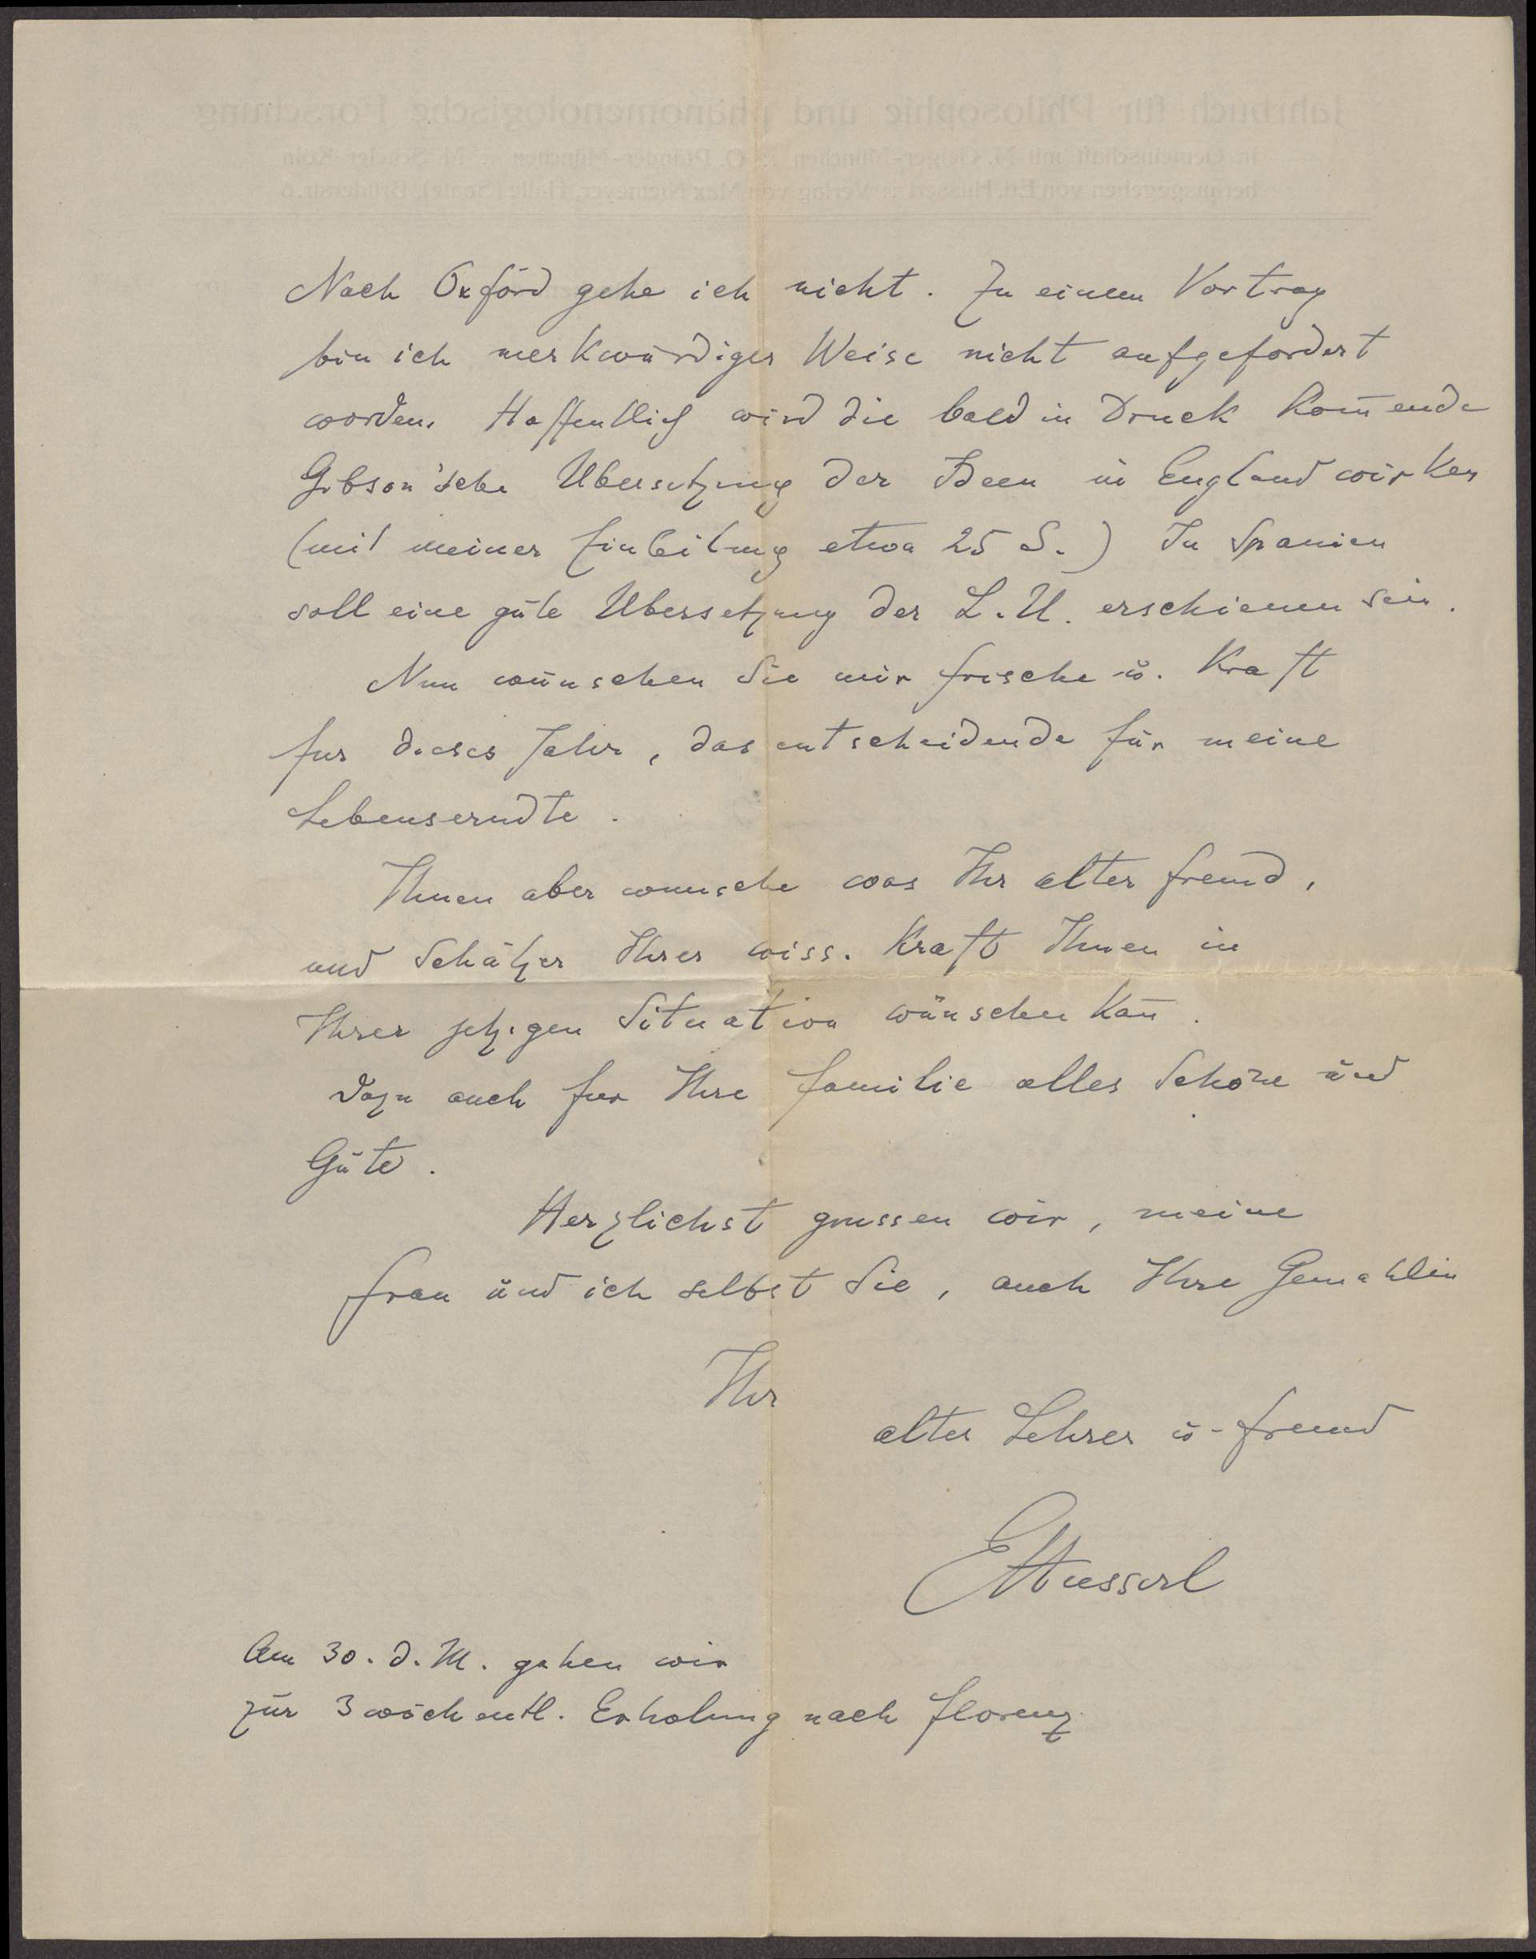 Jahrbuch für Philosophie und phänomenologische Forschung
in Gemeinschaft mit M. Geiger-München :: A. Pfänder-München :: M. Scheler-Köln
herausgegeben von Ed. Husserl :: Verlag von Max Niemeyer, Halle (Saale), Brüderstr. 6
Nach Oxford gehe ich nicht. Zu einem Vortrag
bin ich merkwürdiger Weise nicht aufgefordert
worden. Hoffentlich wird die bald in Druck kom̄ende
Gibson'sche Ubersetzung der Ideen in England wirken
(mit meiner Einleitung etwa 25 S.) In Spanien
soll eine gute Ubersetzung der L.U. erschienen sein.
Nun wünschen Sie mir Frische u. Kraft
fur dieses Jahr, das entscheidende für meine
Lebenserndte.
Ihnen aber wunsche was Ihr alter Freund,
und Schätzer Ihrer wiss. Kraft Ihnen in
Ihrer jetzigen Situation wünschen kan̄.
Dazu auch fur Ihre Familie alles Schöne und
Gute.
Herzlichst grussen wir, meine
Frau und ich selbst Sie, auch Ihre Gemahlin
Ihr
alter Lehrer u. Freund
EHusserl
Am 30. d. M. gehen wir
zur 3wöchentl. Erholung nach Florenz